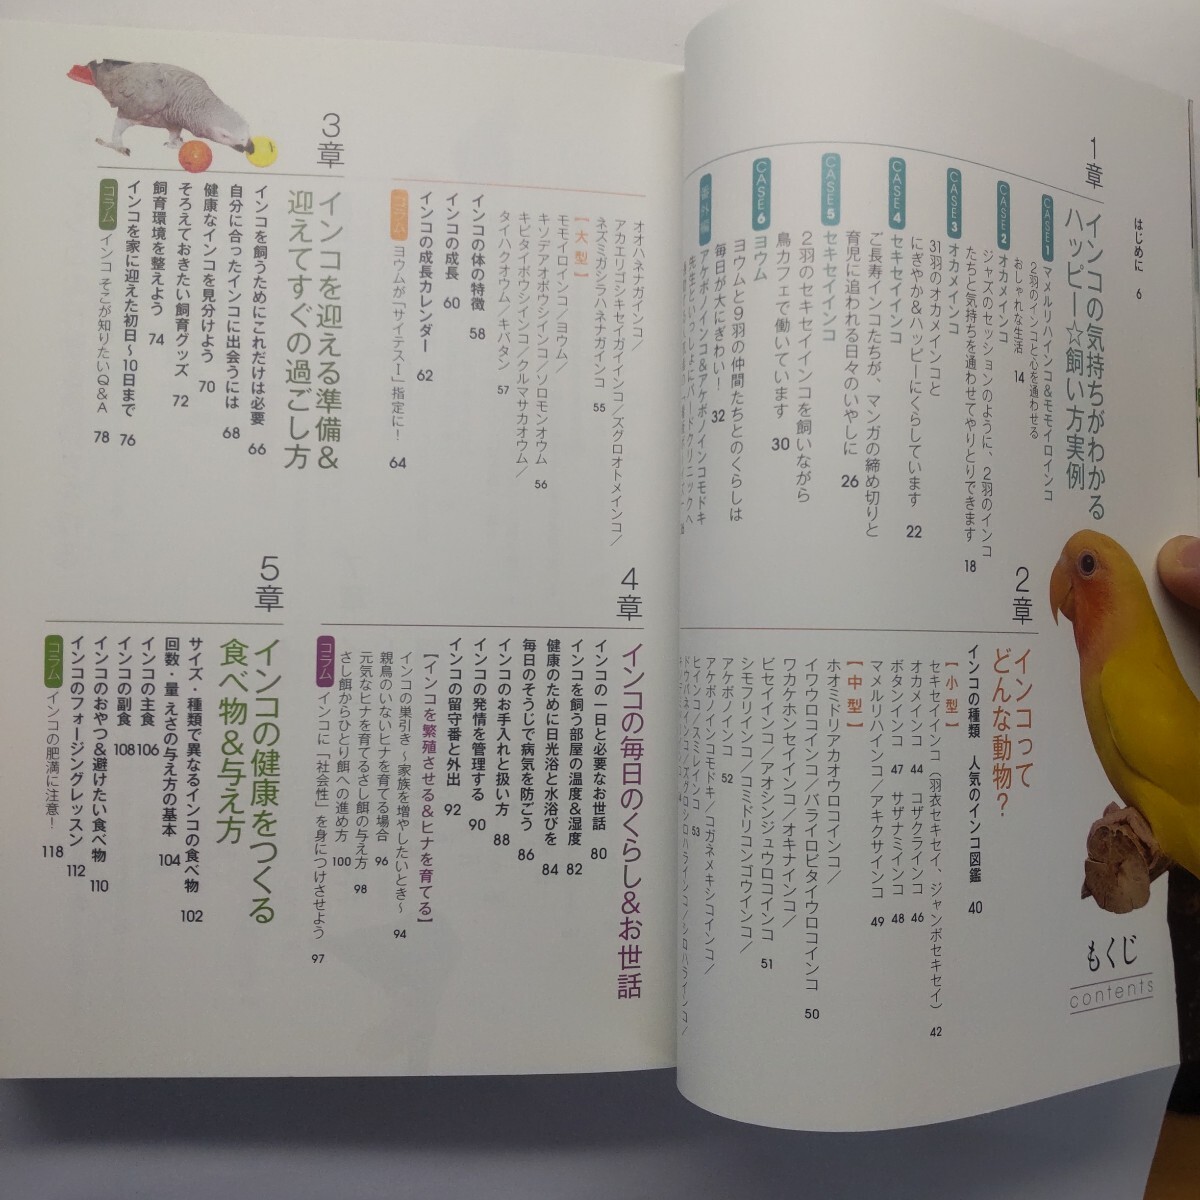 もくじ
contents
はじめに 6
1章 インコの気持ちがわかる
ハッピー☆飼い方実例
CASE1 マメルリハインコ&モモイロインコ
2羽のインコと心を通わせる
おしゃれな生活 14
CASE2 オカメインコ
ジャズのセッションのように、2羽のインコ
たちと気持ちを通わせてやりとりできます 18
CASE3 オカメインコ
31羽のオカメインコと
にぎやか&ハッピーにくらしています 22
CASE4 セキセイインコ
ご長寿インコたちが、マンガの締め切りと
育児に追われる日々のいやしに 26
CASE5 セキセイインコ
2羽のセキセイインコを飼いながら
鳥カフェで働いています 30
CASE6 ヨウム
ヨウムと9羽の仲間たちとのくらしは
毎日が大にぎわい! 32
番外編 アケボノインコ&アケボノインコモドキ
先生といっしょにバードクリニックへ
2章 インコって
どんな動物?
インコの種類 人気のインコ図鑑 40
【小型】
セキセイインコ(羽衣セキセイ、ジャンボセキセイ) 42
オカメインコ 44 コザクラインコ 46
ボタンインコ 47 サザナミインコ 48
マメルリハインコ/アキクサインコ 49
【中型】
ホオミドリアカオウロコインコ/
イワウロコインコ/バライロビタイウロコインコ 50
ワカケホンセイインコ/オキナインコ/
ビセイインコ/アオシンジュウロコインコ 51
シモフリインコ/コミドリコンゴウインコ/
アケボノインコ 52
アケボノインコモドキ/コガネメキシコインコ/
ヒインコ/スミレインコ 53
ドウバネインコ/ズグロシロハラインコ/シロハラインコ/
オオハネナガインコ/
アカエリゴシキセイガイインコ/ズグロオトメインコ/
ネズミガシラハネナガインコ 55
【大型】
モモイロインコ/ヨウム/
キソデアオボウシインコ/ソロモンオウム 56
キビタイボウシインコ/クルマサカオウム/
タイハクオウム/キバタン 57
インコの体の特徴 58
インコの成長 60
インコの成長カレンダー 62
コラム ヨウムが「サイテスⅠ」指定に! 64
3章 インコを迎える準備&
迎えてすぐの過ごし方
インコを飼うためにこれだけは必要 66
自分に合ったインコに出会うには 68
健康なインコを見分けよう 70
そろえておきたい飼育グッズ 72
飼育環境を整えよう 74
インコを家に迎えた初日〜10日まで 76
コラム インコ そこが知りたいQ&A 78
4章 インコの毎日のくらし&お世話
インコの一日と必要なお世話 80
インコを飼う部屋の温度&湿度 82
健康のために日光浴と水浴びを 84
毎日のそうじで病気を防ごう 86
インコのお手入れと扱い方 88
インコの発情を管理する 90
インコの留守番と外出 92
【インコを繁殖させる&ヒナを育てる】
インコの巣引き〜家族を増やしたいとき〜 94
親鳥のいないヒナを育てる場合 96
元気なヒナを育てるさし餌の与え方 98
さし餌からひとり餌への進め方 100
コラム インコに「社会性」を身につけさせよう 97
5章 インコの健康をつくる
食べ物&与え方
サイズ・種類で異なるインコの食べ物 102
回数・量 えさの与え方の基本 104
インコの主食 106
インコの副食 108
インコのおやつ&避けたい食べ物 110
インコのフォージングレッスン 112
コラム インコの肥満に注意! 118